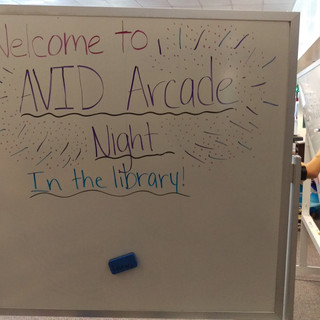 Welcome to
AVID Arcade
Night
In the library!